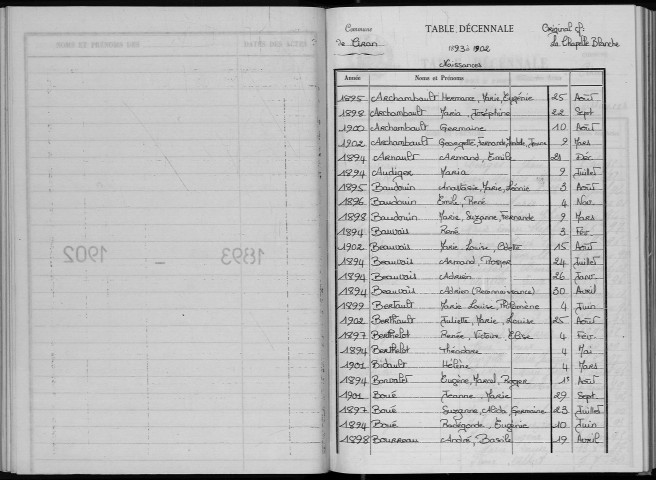 Commune
de Ciran
TABLE DÉCENNALE
1893 à 1902
Naissances
Original cf.
La Chapelle Blanche
Année Noms et Prénoms
1895 Archambault Hermance, Marie, Eugénie 25 Août
1898 Archambault Maria Joséphine 22 Sept
1900 Archambault Germaine 10 Août
1902 Archambault Georgette, Fernande, Jeanne 9 Mars
1894 Arnault Armand, Emile 21 Déc
1894 Audiger Maria 9 Juillet
1895 Baudouin Anastasie, Marie, Léonie 3 Août
1896 Baudouin Emile, René 4 Nov
1898 Baudouin Marie, Suzanne, Fernande 9 Mars
1894 Bauvais René 3 Fév
1902 Beauvais Marie Louise, 15 Août
1894 Beauvais Armand, Roger 24 Juillet
1894 Beauvais Adrien 26 Janv
1894 Beauvais Adrien (Reconnaissance) 30 Avril
1899 Bertault Marie Louise, Philomène 4 Juin
1902 Berthault Juliette, Marie, Louise 25 Août
1897 Berthelot Renée, Victoire, Elise 4 Fév
1894 Berthelot Théodore 4 Mai
1901 Bidault Hélène 4 Mars
1894 Bonvalet Eugène, Marcel, Roger 1er Août
1901 Boué Jeanne, Marie 29 Sept
1897 Boué Suzanne, Alida, Germaine 23 Juillet
1894 Boué Radégonde, Eugénie 10 Juin
1898 Bourreau André, Basile 19 Avril
NOMS ET PRÉNOMS DES
DATES DES ACTES
1893 - 1902